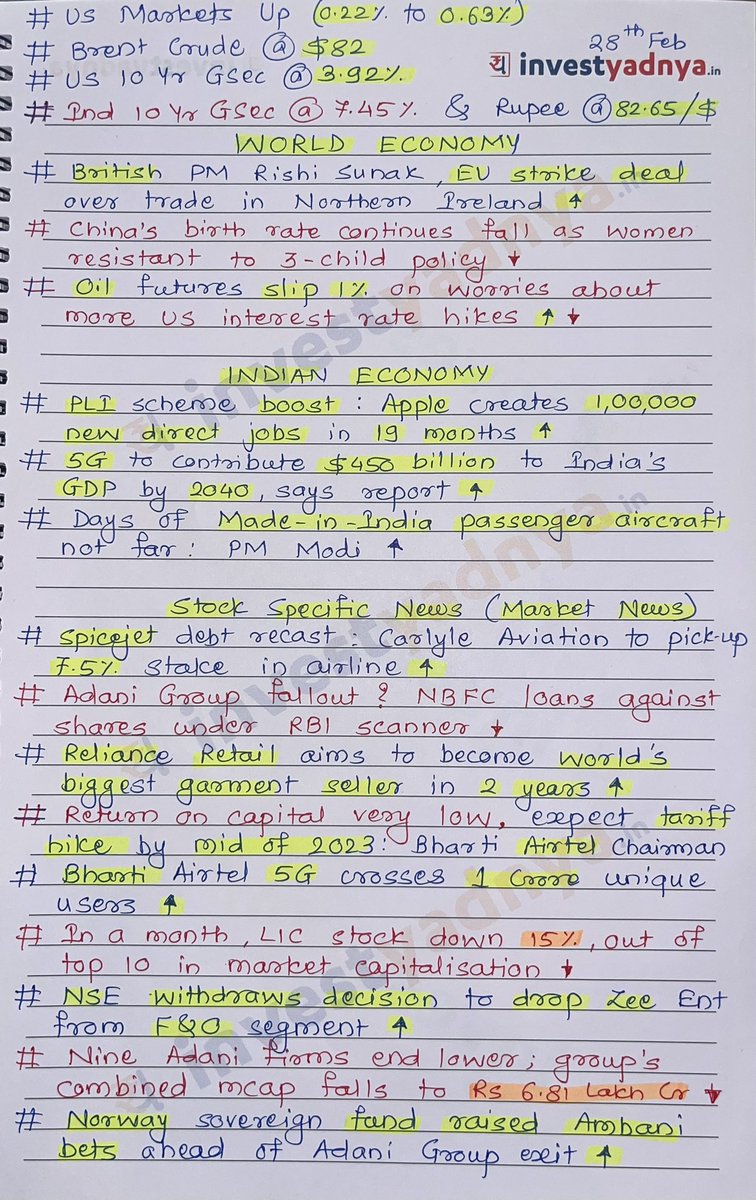 # US Markets Up (0.22% to 0.63%)
28th Feb
# Brent Crude @ $82
य investyadnya.in
# US 10 Yr Gsec @ 3.92%
# Ind 10 Yr GSec @ 7.45% & Rupee @ 82.65/$
WORLD ECONOMY
# British PM Rishi Sunak, EU strike deal
over trade in Northern Ireland ↑
# China's birth rate continues fall as women
resistant to 3-child policy ↓
# Oil futures slip 1% on worries about
more US interest rate hikes ↑ ↓
INDIAN ECONOMY
# PLI scheme boost : Apple creates 1,00,000
new direct jobs in 19 months ↑
# 5G to contribute $450 billion to India's
GDP by 2040, says report ↑
# Days of Made-in-India passenger aircraft
not far : PM Modi ↑
Stock Specific News (Market News)
# Spicejet debt recast : Carlyle Aviation to pick-up
7.5% stake in airline ↑
# Adani Group fallout ? NBFC loans against
shares under RBI scanner ↓
# Reliance Retail aims to become world's
biggest garment seller in 2 years ↑
# Return on capital very low, expect tariff
hike by mid of 2023: Bharti Airtel Chairman
# Bharti Airtel 5G crosses 1 Crore unique
users ↑
# In a month, LIC stock down 15%, out of
top 10 in market capitalisation ↓
# NSE withdraws decision to drop Zee Ent
from F&O segment ↑
# Nine Adani firms end lower; group's
combined mcap falls to Rs 6.81 Lakh Cr ↓
# Norway sovereign fund raised Ambani
bets ahead of Adani Group exit ↑